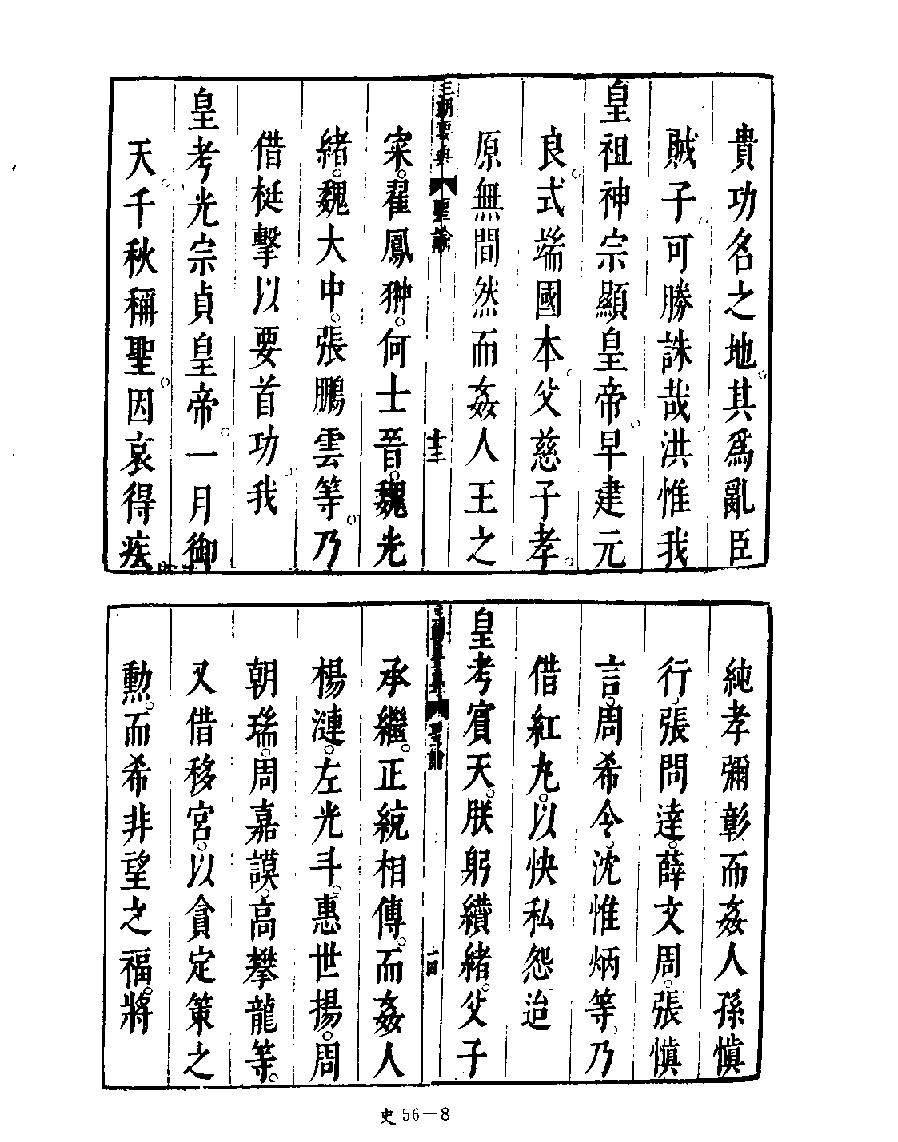 貴功名之地。其爲亂臣
賊子。可勝誅哉。洪惟我
皇祖神宗顯皇帝。早建元
良。式端國本。父慈子孝。
原無間然。而姦人王之
三朝要典 聖諭 十三
寀。翟鳳翀。何士晉。魏光
緒。魏大中。張鵬雲等。乃
借梃擊以要首功。我
皇考光宗貞皇帝。一月御
天。千秋稱聖。因哀得疾。
純孝彌彰。而姦人孫愼
行。張問達。薛文周。張愼
言。周希令。沈惟炳等。乃
借紅丸。以快私怨。迨
皇考賓天。朕躬纘緒。父子
三朝要典 聖諭 十四
承繼。正統相傳。而姦人
楊漣。左光斗。惠世揚。周
朝瑞。周嘉謨。高攀龍等。
又借移宮。以貪定策之
勳。而希非望之福。將
史 56—8